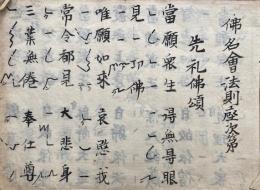 佛名會法則座次第
先礼佛頌
當願衆生 得無导眼
見一切佛
唯願如來 哀愍我
常令都見 大悲身
三業無倦 奉仕尊